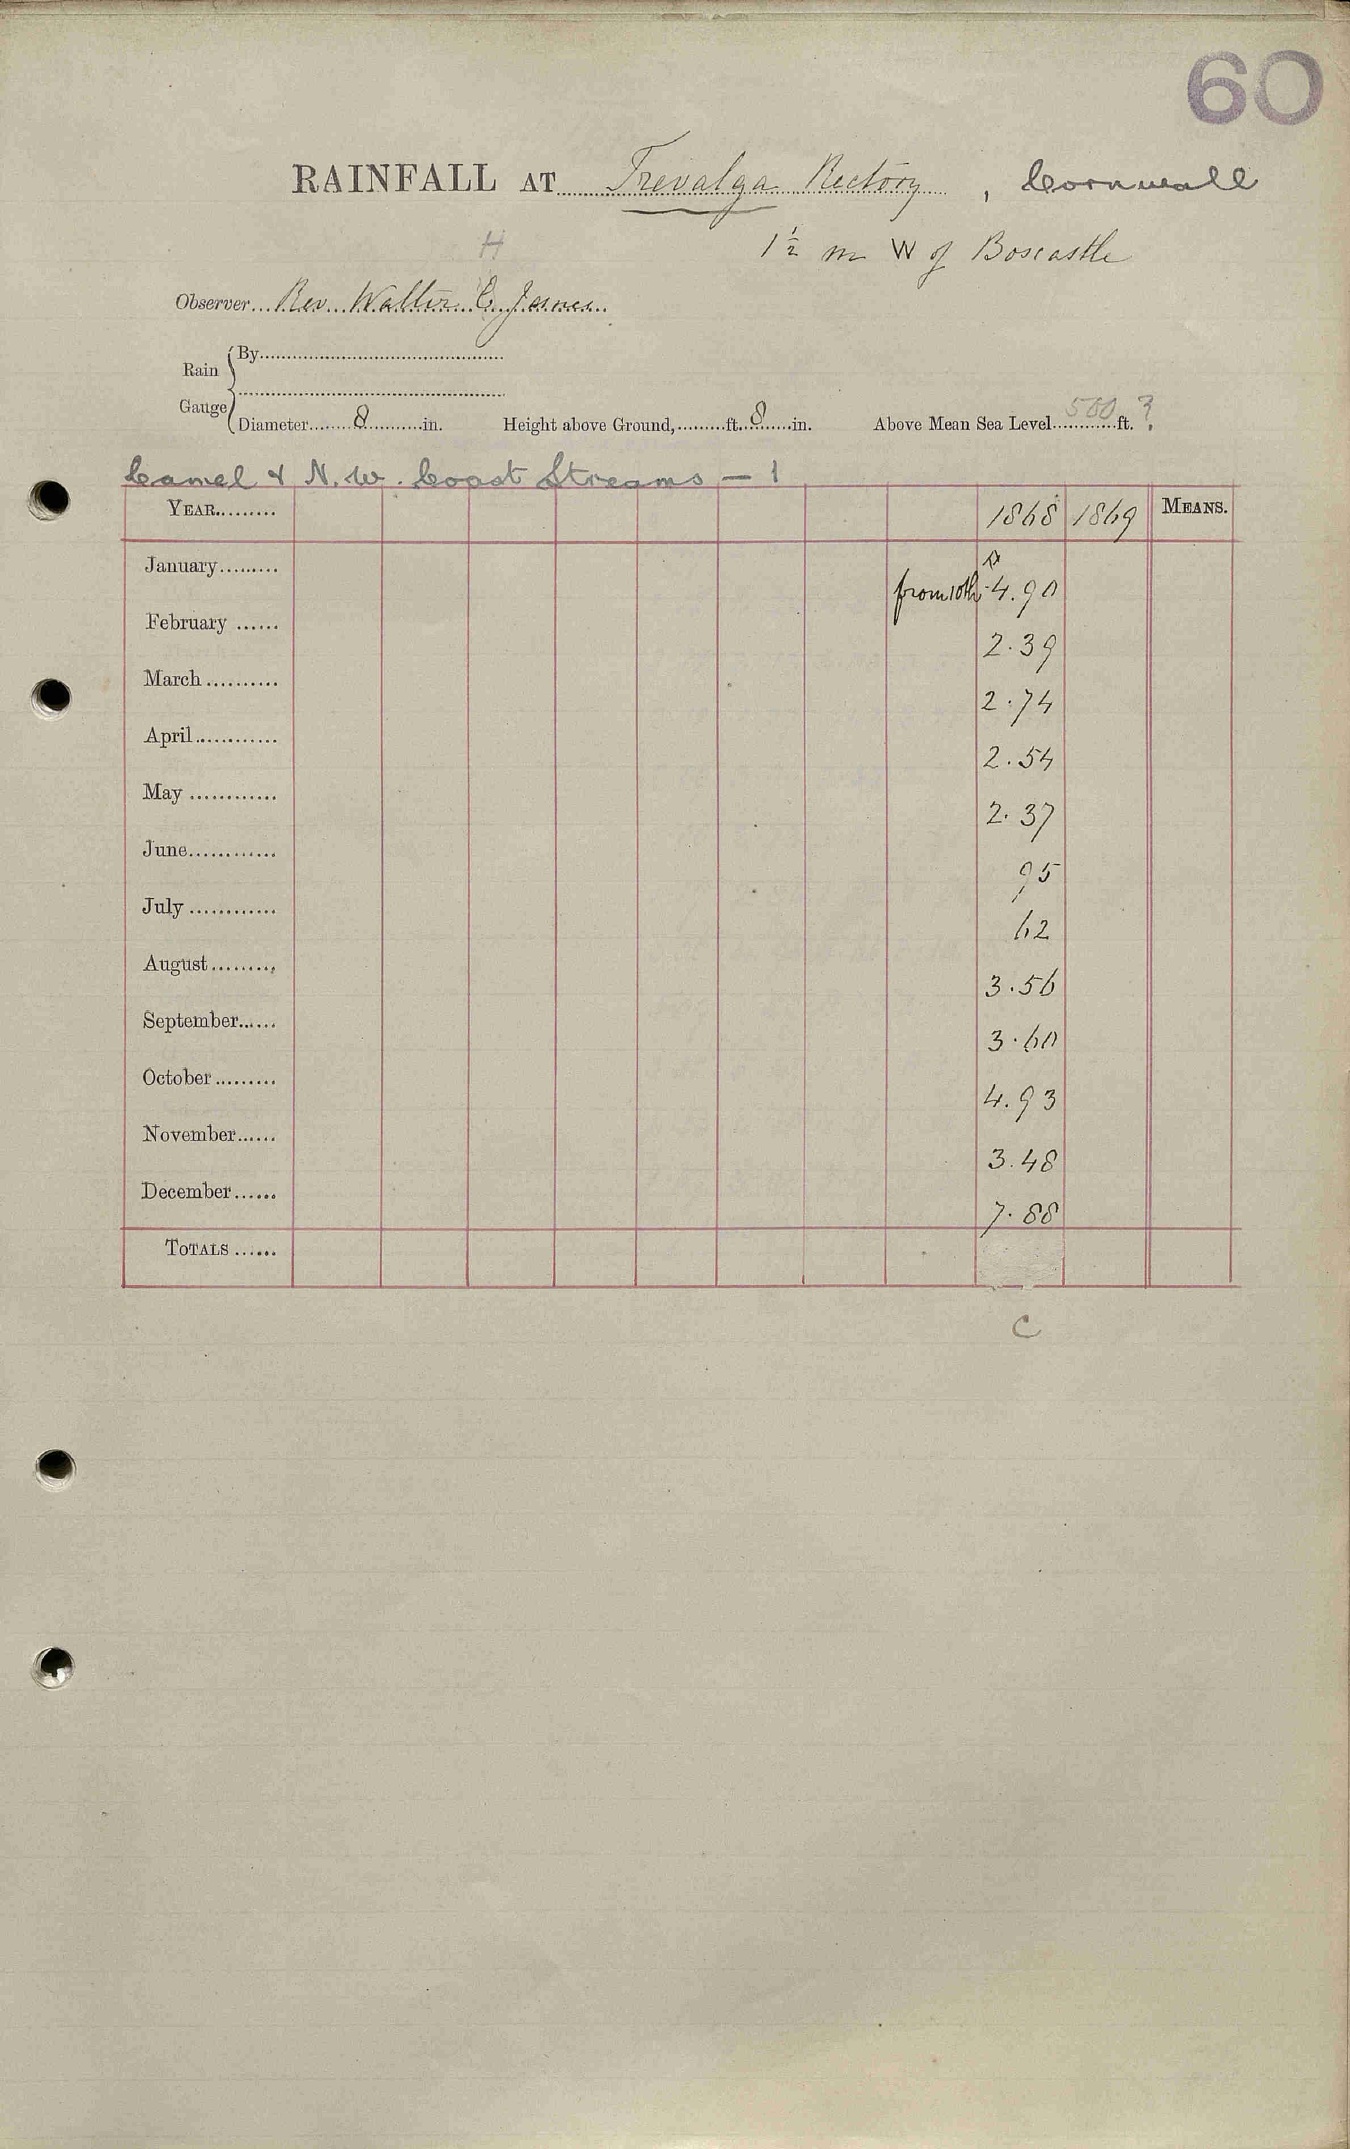 60
RAINFALL AT Trevalga Rectory, Cornwall
1½ m W of Boscastle
H
Observer... Rev. Walter C. James
Rain Gauge
By
Diameter 8 in. Height above Ground, ft. 8 in. Above Mean Sea Level 500 ft. ?
Camel & N.W. Coast Streams — 1
YEAR 1868 1869 MEANS.
January from 10th 4.90
February 2.39
March 2.74
April 2.54
May 2.37
June 95
July 62
August 3.56
September 3.60
October 4.93
November 3.48
December 7.88
TOTALS
C